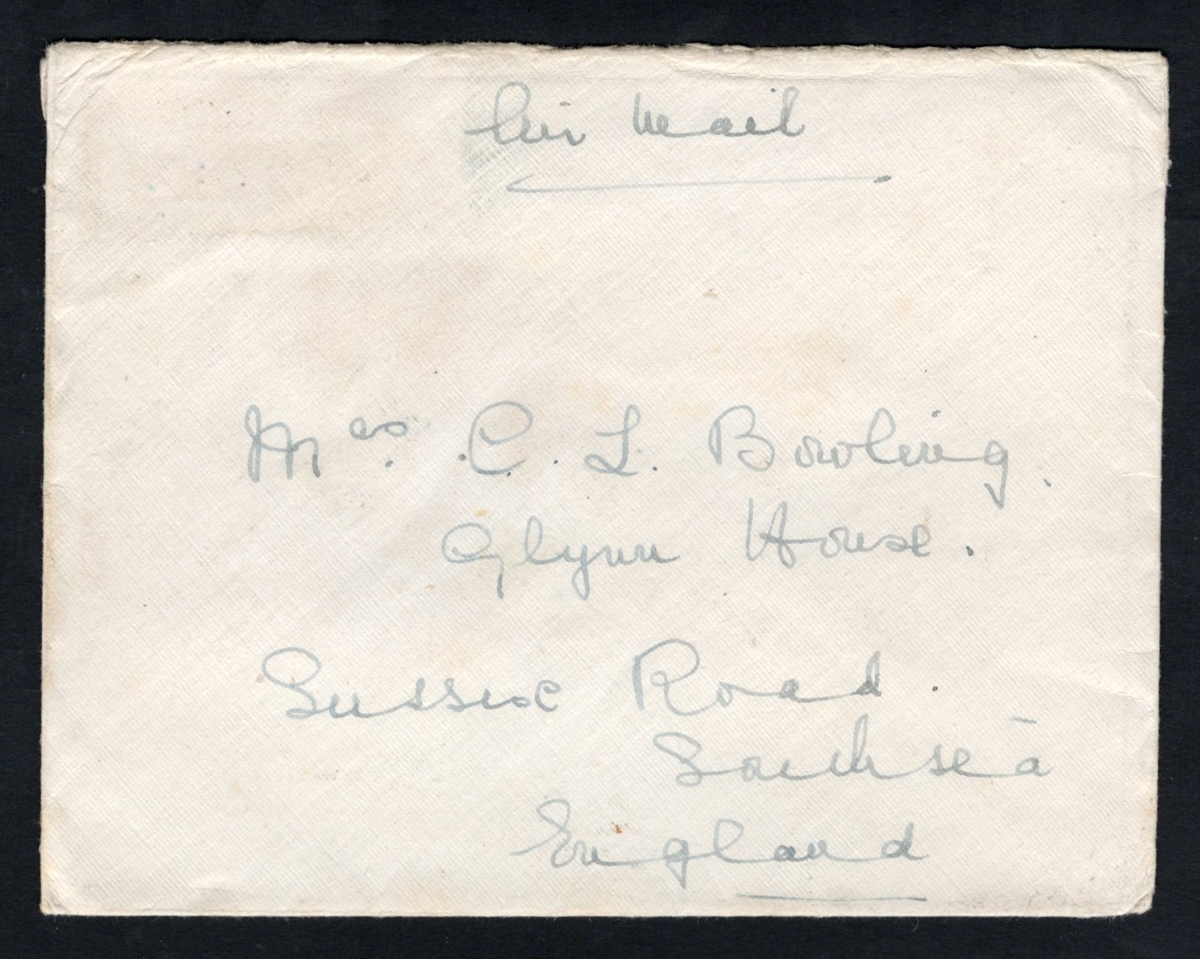 Air Mail
Mrs. C. L. Bowling.
Glynn House.
Sussex Road.
Southsea
England